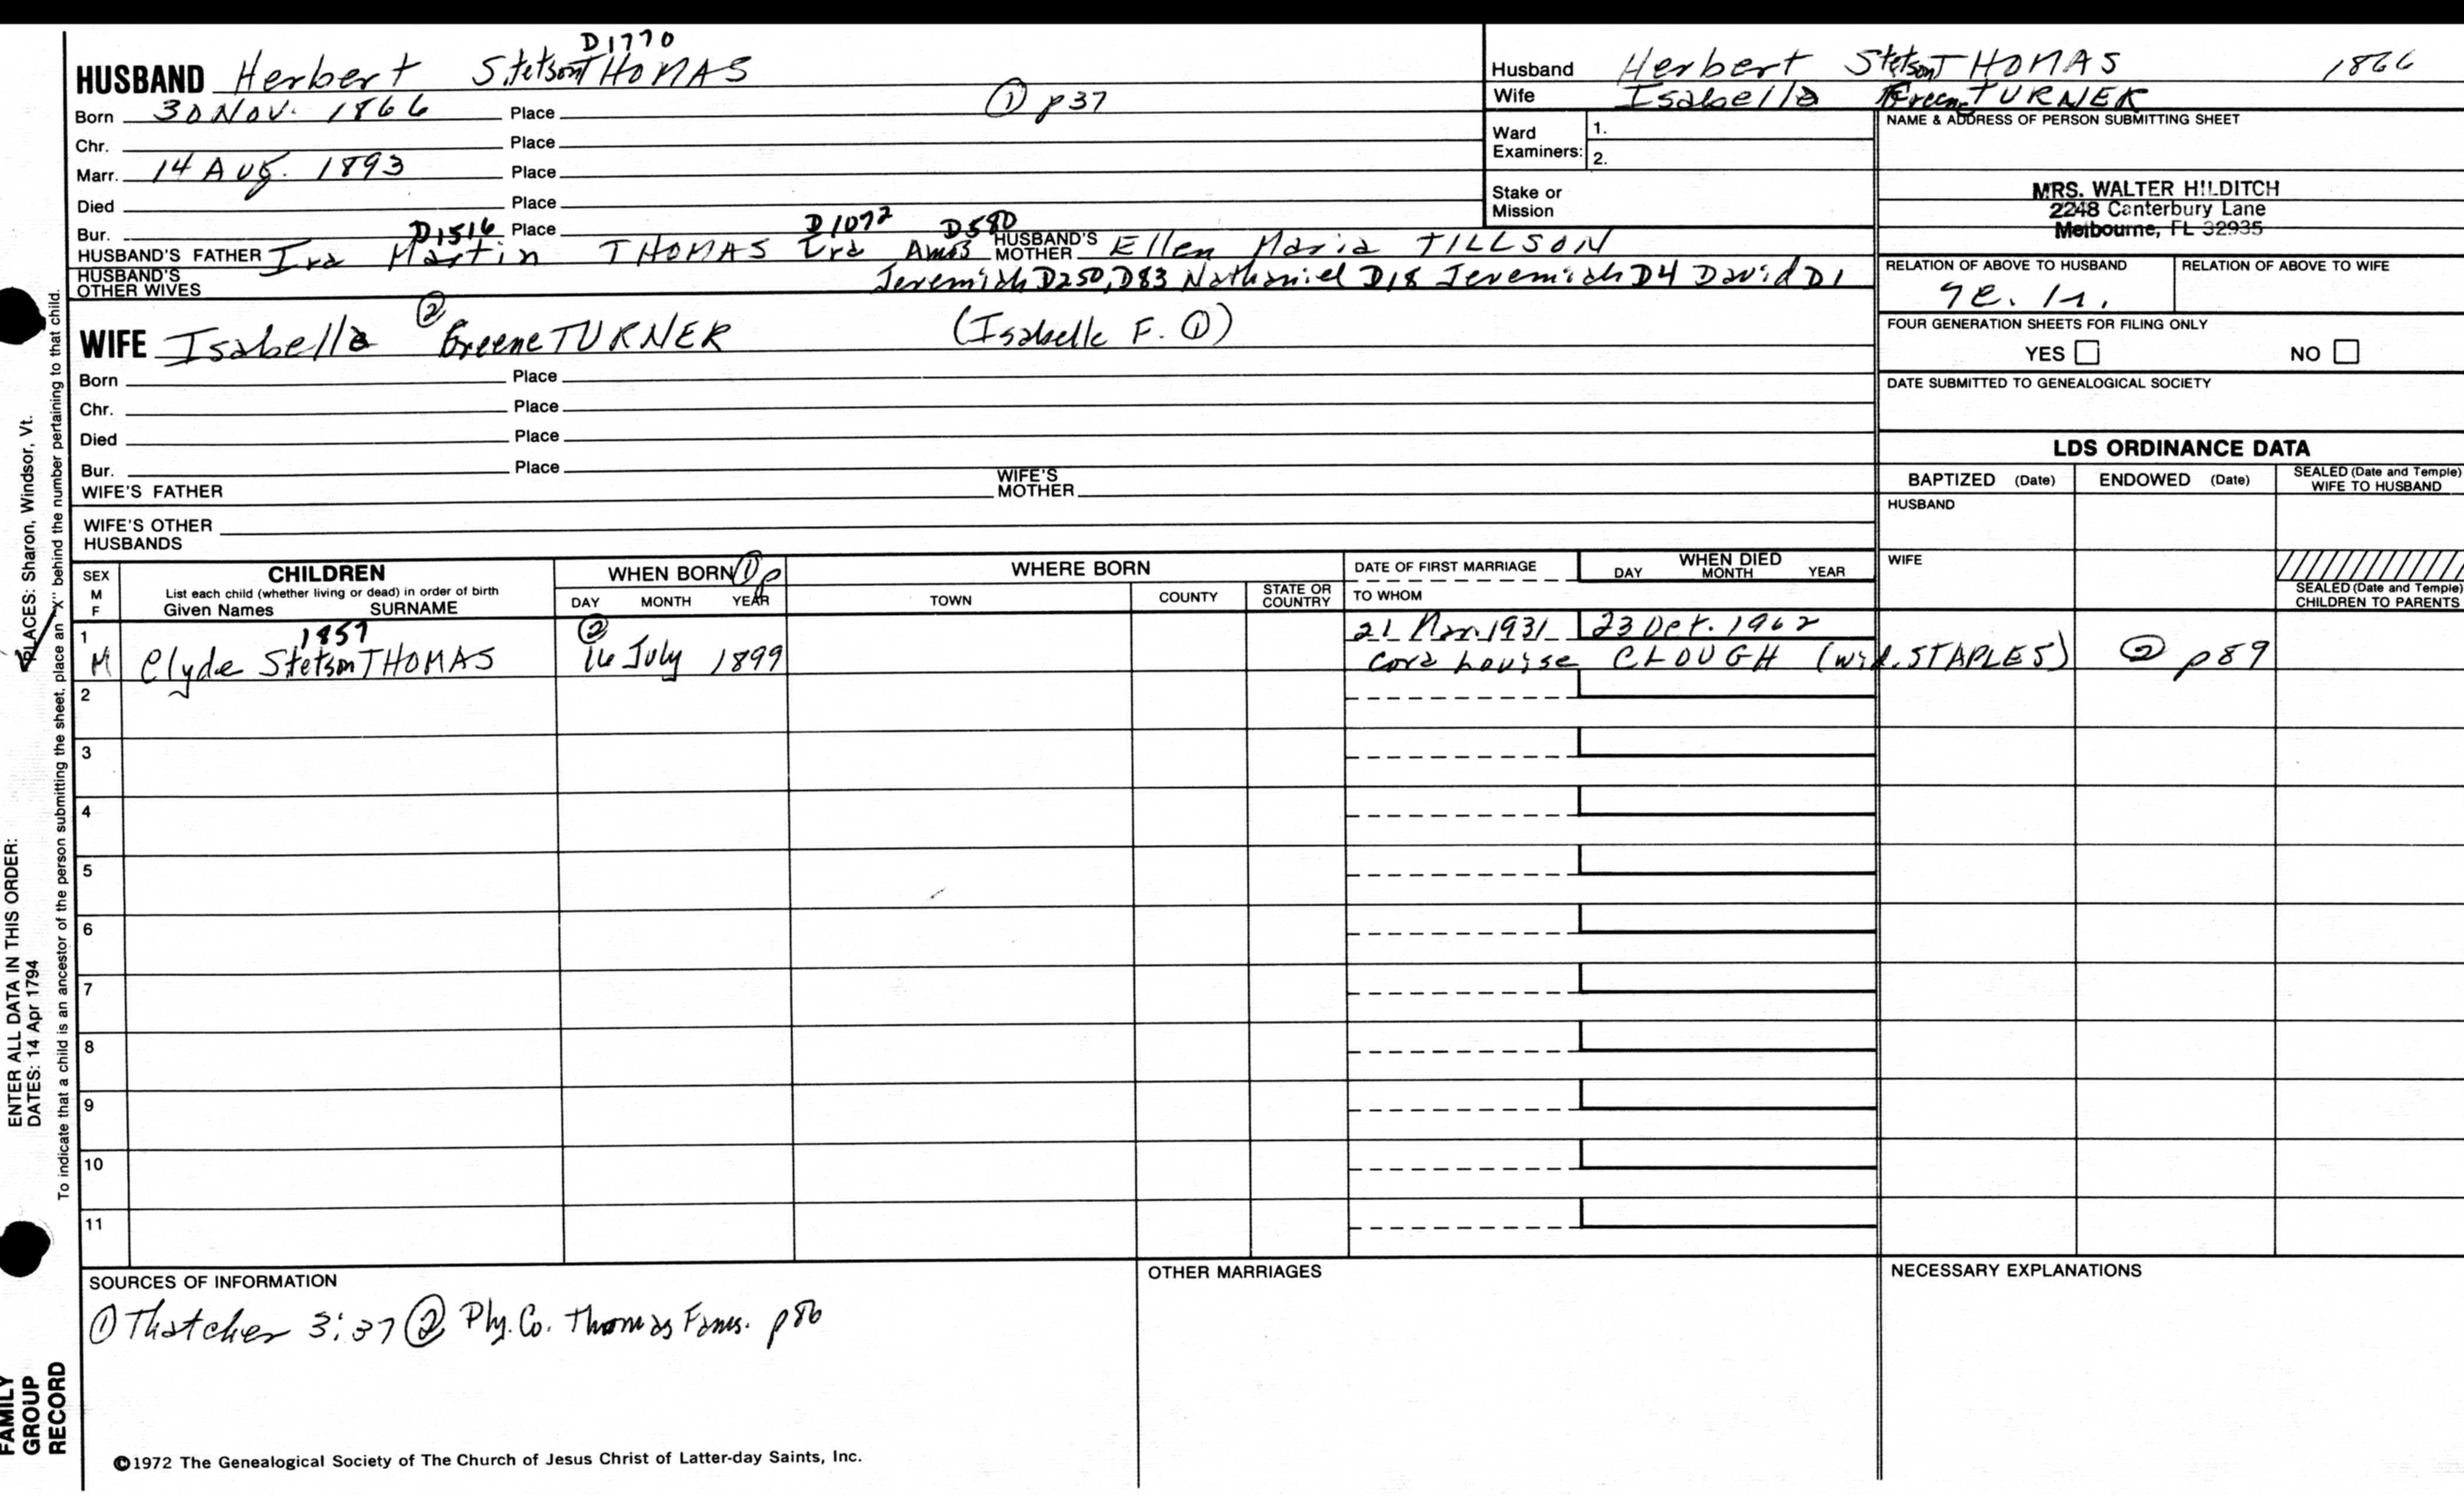 D1770
HUSBAND Herbert Stetson THOMAS
Born 30 Nov. 1866 Place ① p37
Chr. Place
Marr. 14 Aug. 1893 Place
Died Place
Bur. Place
D1516 D1072 D580
HUSBAND'S FATHER Ira Martin THOMAS Ira Amos HUSBAND'S MOTHER Ellen Maria TILLSON
HUSBAND'S OTHER WIVES Jeremiah D250, D83 Nathaniel D18 Jeremiah D4 David D1
②
WIFE Isabella Greene TURNER (Isabelle F. ①)
Born Place
Chr. Place
Died Place
Bur. Place
WIFE'S FATHER WIFE'S MOTHER
WIFE'S OTHER HUSBANDS
Husband Herbert Stetson THOMAS 1866
Wife Isabella Greene TURNER
Ward Examiners: 1.
2.
Stake or Mission
NAME & ADDRESS OF PERSON SUBMITTING SHEET
MRS. WALTER HILDITCH
2248 Canterbury Lane
Melbourne, FL 32935
RELATION OF ABOVE TO HUSBAND RELATION OF ABOVE TO WIFE
FOUR GENERATION SHEETS FOR FILING ONLY
YES NO
DATE SUBMITTED TO GENEALOGICAL SOCIETY
LDS ORDINANCE DATA
BAPTIZED (Date) ENDOWED (Date) SEALED (Date and Temple) WIFE TO HUSBAND
HUSBAND
WIFE
SEALED (Date and Temple) CHILDREN TO PARENTS
SEX M F
CHILDREN
List each child (whether living or dead) in order of birth
Given Names SURNAME
WHEN BORN ① p
DAY MONTH YEAR
WHERE BORN
TOWN COUNTY STATE OR COUNTRY
DATE OF FIRST MARRIAGE
TO WHOM
WHEN DIED
DAY MONTH YEAR
1 1857 ② 21 Mar. 1931 23 Oct. 1962
M Clyde Stetson THOMAS 16 July 1899 Cora Louise CLOUGH (wid. STAPLES) ② p89
2
3
4
5
6
7
8
9
10
11
SOURCES OF INFORMATION
① Thatcher 3:37 ② Ply. Co. Thomas Fams. p86
OTHER MARRIAGES
NECESSARY EXPLANATIONS
©1972 The Genealogical Society of The Church of Jesus Christ of Latter-day Saints, Inc.
FAMILY
GROUP
RECORD
ENTER ALL DATA IN THIS ORDER:
DATES: 14 Apr 1794
PLACES: Sharon, Windsor, Vt.
To indicate that a child is an ancestor of the person submitting the sheet, place an "X" behind the number pertaining to that child.